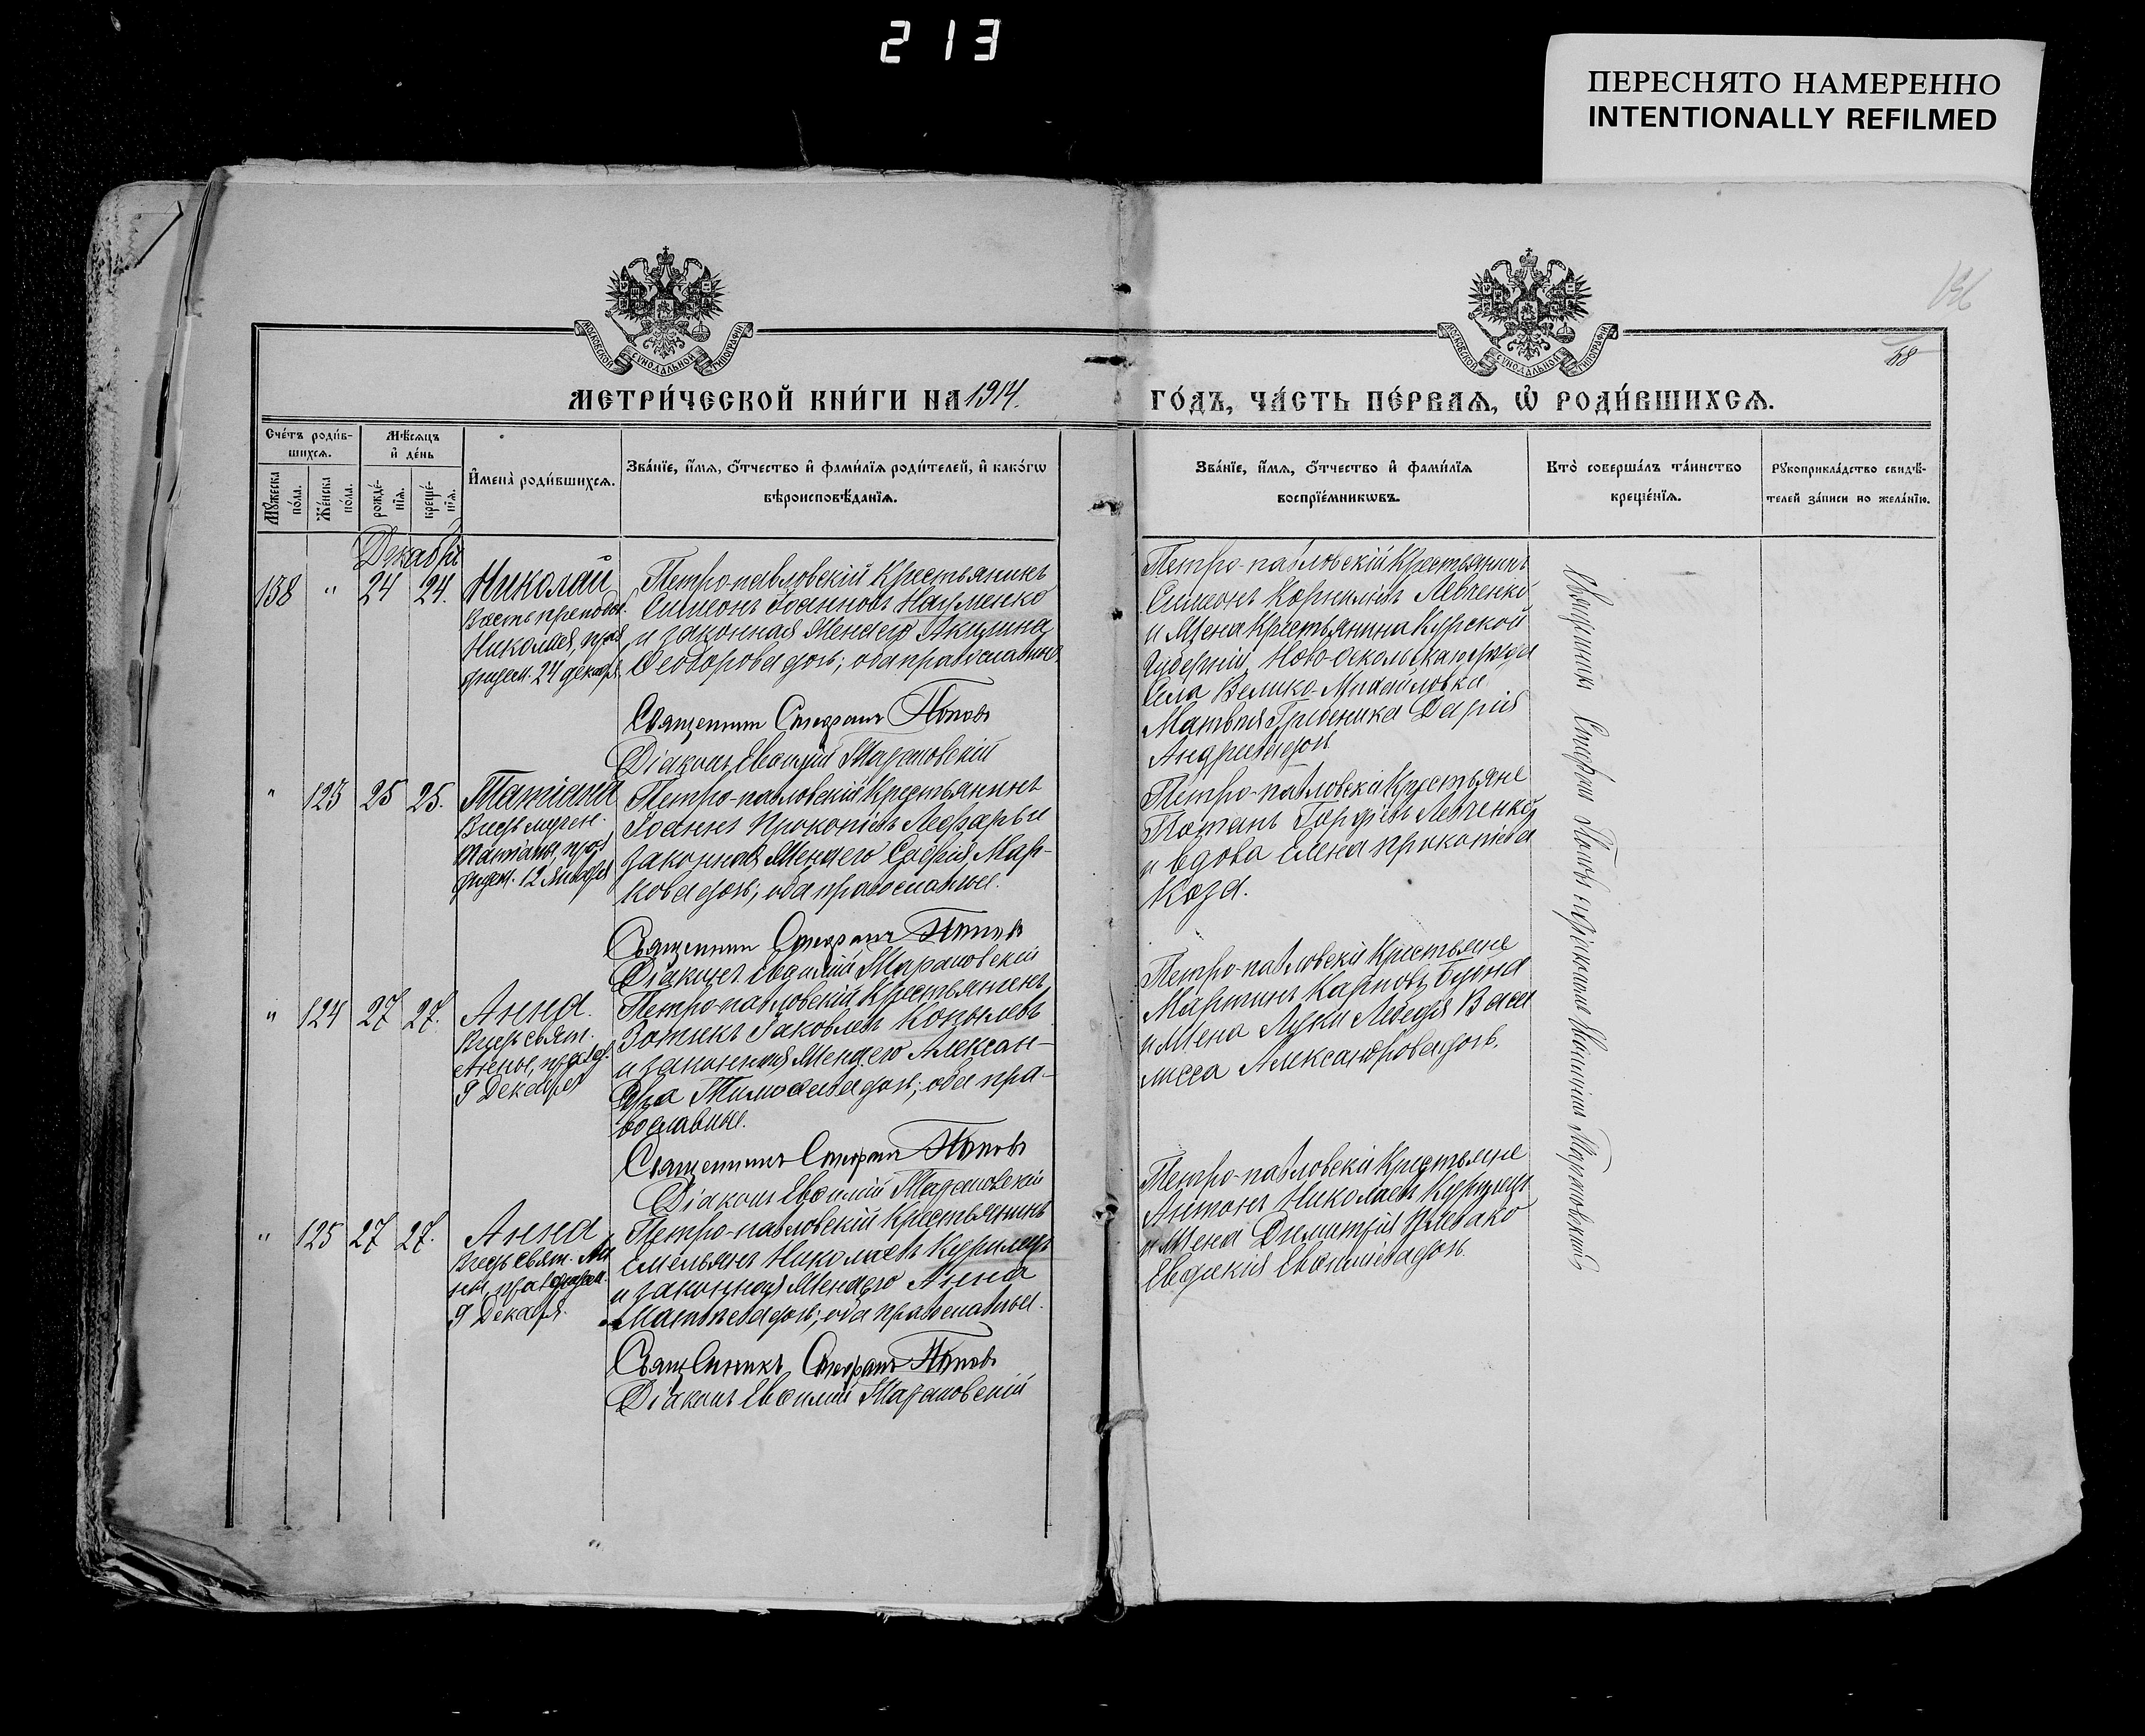 213
ПЕРЕСНЯТО НАМЕРЕННО
INTENTIONALLY REFILMED
МОСКОВСКОЙ СѴНОДАЛЬНОЙ ТИПОГРАФІИ
МОСКОВСКОЙ СѴНОДАЛЬНОЙ ТИПОГРАФІИ
68
МЕТРИ́ЧЕСКОЙ КНИ́ГИ НА 1914.
ГО́ДЪ, ЧА́СТЬ ПЕ́РВАЯ, Ѡ҆ РОДИ́ВШИХСѦ.
Сче́тъ роди́в-
шихсѧ.
Мꙋ́жеска по́ла.
Же́нска по́ла.
Мѣ́сѧцъ
и҆ де́нь
рожде́-
нїѧ.
креще́-
нїѧ.
И҆мена̀ роди́вшихсѧ.
Зва́нїе, и҆́мѧ, ѻ҆́тчество и҆ фами́лїѧ роди́телей, и҆ како́гѡ
вѣроисповѣ́данїѧ.
Зва́нїе, и҆́мѧ, ѻ҆́тчество и҆ фами́лїѧ
воспрїе́мникѡвъ.
Кто̀ соверша́лъ та́инство
креще́нїѧ.
Рꙋкоприкла́дство свидѣ́-
телей за́писи по жела́нїю.
Декабрь
138 " 24 24. Николай
Въ честь преподоб.
Николая, праз
днуем. 24 декабря.
Петро-павловскій Крестьянинъ
Симеонъ Іоанновъ Науменко
и законная жена его Акилина
Ѳеодорова дочь; оба православные
Священникъ Стефанъ Поповъ
Діаконъ Евѳимій Тарановскій
Петро-павловскій Крестьянинъ
Симеонъ Корниліевъ Левченко
и жена Крестьянина Курской
Губерніи, Ново-Оскольскаго уѣзда
Села Велико-Михайловки
Матвѣя Гребеника Дарія
Андреева дочь
" 123 25 25. Татіана
Въ честь мучен.
Татіаны, праз
днуем. 12 Января
Петро-павловскій Крестьянинъ
Іоаннъ Прокопіевъ и
законная жена его Софія Мар-
кова дочь; оба православные.
Священникъ Стефанъ Поповъ
Діаконъ Евѳимій Тарановскій
Петро-павловскіе Крестьяне
Потапъ Левченко
и вдова Елена Прокопіева
Коза.
" 124 27 27. Анна.
Въ честь Свят.
Анны, празд.
9 Декабря
Петро-павловскій Крестьянинъ
Іаковлевъ Копылевъ
и законная жена его Алексан-
дра Тимоѳеева дочь; оба пра-
вославные.
Священникъ Стефанъ Поповъ
Діаконъ Евѳимій Тарановскій
Петро-павловскіе Крестьяне
Мартинъ Карповъ
и жена Луки Лебедя Васи
лисса Александрова дочь.
" 125 27 27. Анна
Въ честь Свят. Ан
ны, праздуем.
9 Декабря.
Петро-павловскій Крестьянинъ
Емельянъ Николаевъ Курилецъ
и законная жена его Анна
Матвѣева дочь; оба православные.
Священникъ Стефанъ Поповъ
Діаконъ Евѳимій Тарановскій
Петро-павловскіе Крестьяне
Антонъ Николаевъ Курилецъ
и жена Димитрія
Евдокія Евѳиміева дочь.
Священникъ Стефанъ Поповъ съ діакономъ Евѳиміемъ Тарановскимъ